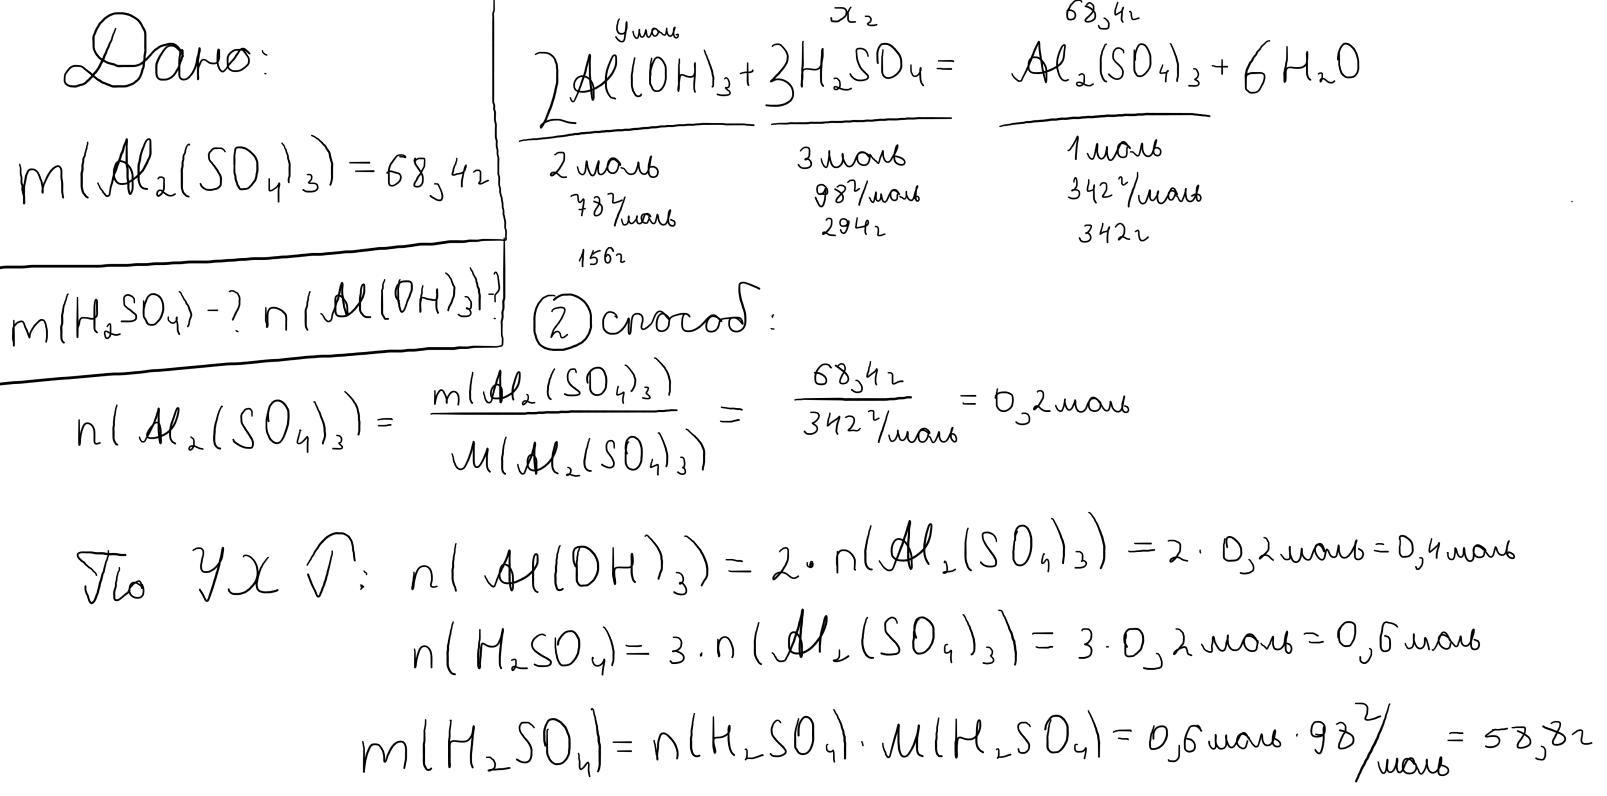 Дано:
m(Al₂(SO₄)₃) = 68,4г
m(H₂SO₄) - ? n(Al(OH)₃)?
y моль x г 68,4г
2Al(OH)₃ + 3H₂SO₄ = Al₂(SO₄)₃ + 6H₂O
2 моль 3 моль 1 моль
78 г/моль 98 г/моль 342 г/моль
156г 294г 342г
② способ:
n(Al₂(SO₄)₃) = m(Al₂(SO₄)₃) / M(Al₂(SO₄)₃) = 68,4г / 342 г/моль = 0,2 моль
По УХР: n(Al(OH)₃) = 2·n(Al₂(SO₄)₃) = 2·0,2 моль = 0,4 моль
n(H₂SO₄) = 3·n(Al₂(SO₄)₃) = 3·0,2 моль = 0,6 моль
m(H₂SO₄) = n(H₂SO₄)·M(H₂SO₄) = 0,6 моль·98 г/моль = 58,8г